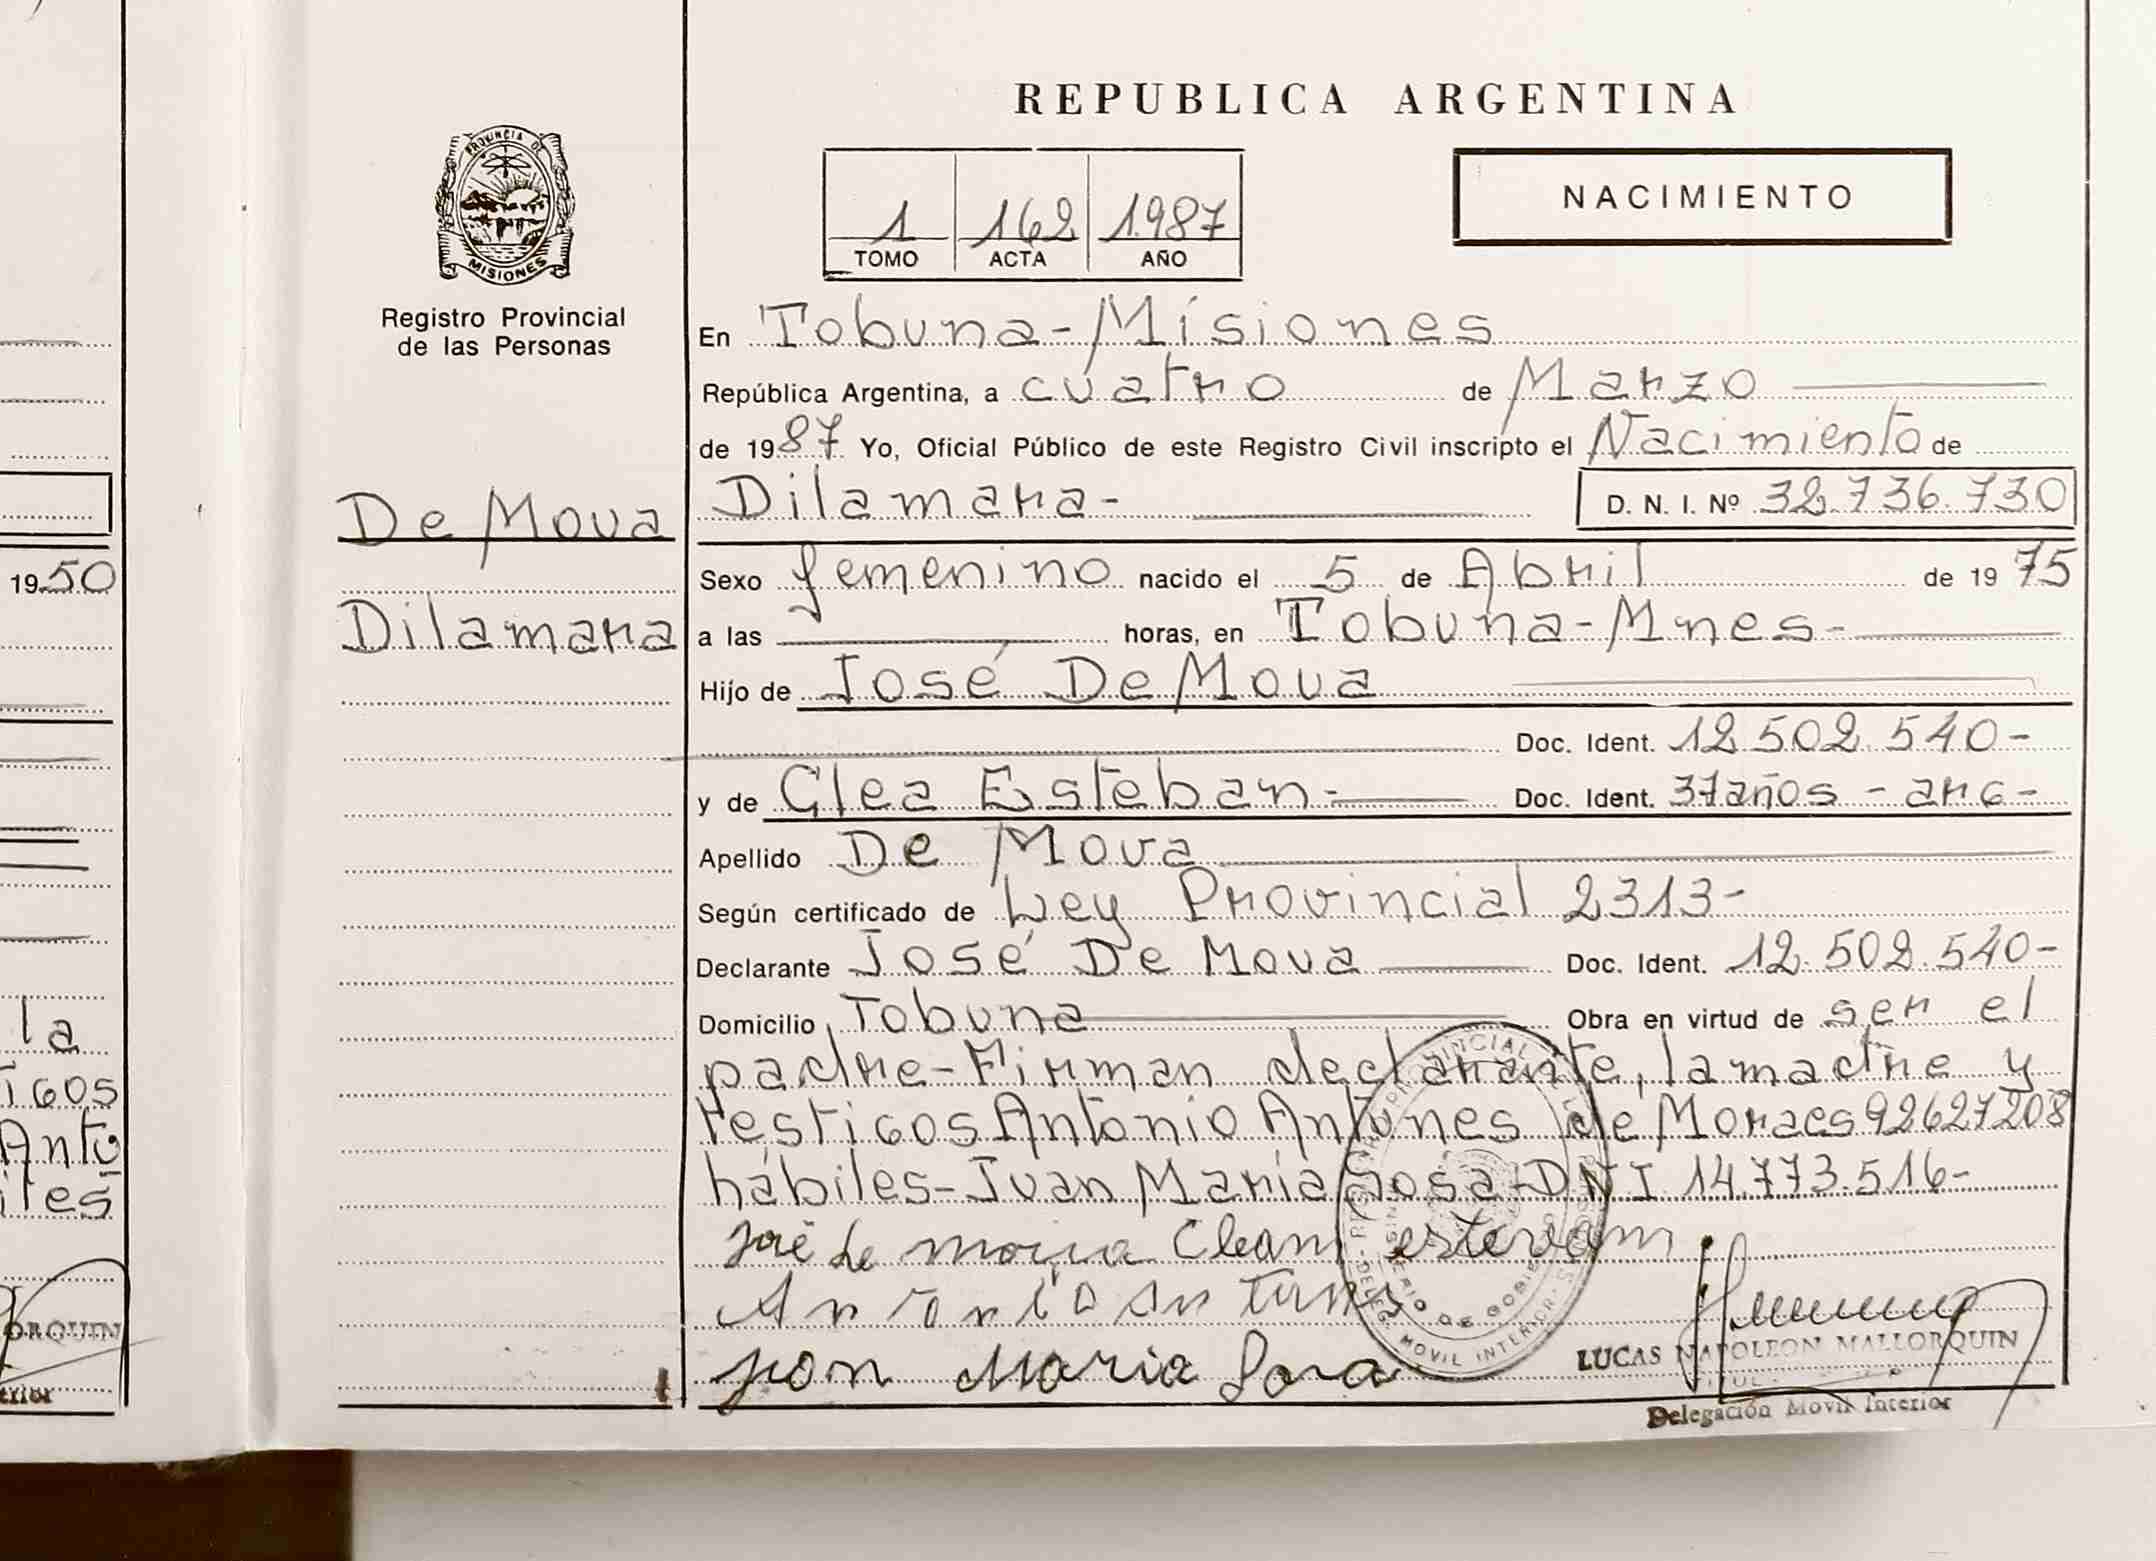 REPUBLICA ARGENTINA
PROVINCIA DE
MISIONES
Registro Provincial
de las Personas
1 162 1987
TOMO ACTA AÑO
NACIMIENTO
En Tobuna-Misiones
República Argentina, a cuatro de Marzo
de 1987 Yo, Oficial Público de este Registro Civil inscripto el Nacimiento de
De Moua Dilamara- D. N. I. Nº 32.736.730
1950
Sexo femenino nacido el 5 de Abril de 1975
Dilamara a las horas, en Tobuna-Mnes-
Hijo de José De Moua
Doc. Ident. 12.502.540-
y de Clea Esteban- Doc. Ident. 37años - arg-
Apellido De Moua
Según certificado de Ley Provincial 2313-
Declarante José De Moua Doc. Ident. 12.502.540-
Domicilio Tobuna Obra en virtud de ser el
la
padre-Firman declarante, la madre y
igos
testigos Antonio Antunes de Moraes 92627208
Antu
hábiles-Juan María Sosa-DNI 14.773.516-
iles
José de moura Clean estevam
Antonio antunes
Juan Maria Sosa
ORQUIN
LUCAS NAPOLEON MALLORQUIN
TITULAR
Delegación Movil Interior
terior
DELEG. MOVIL INTERIOR